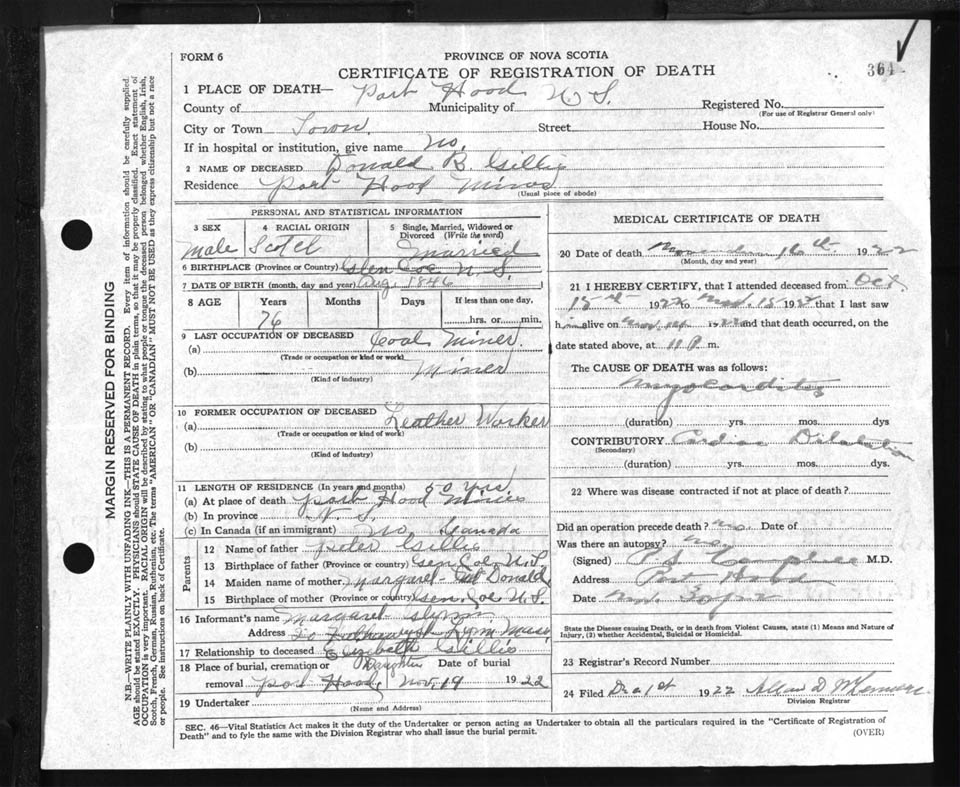 FORM 6
PROVINCE OF NOVA SCOTIA
CERTIFICATE OF REGISTRATION OF DEATH
364
1 PLACE OF DEATH— Port Hood N. S.
County of Municipality of Registered No.
(For use of Registrar General only)
City or Town Town. Street House No.
If in hospital or institution, give name No.
2 NAME OF DECEASED Donald B. Gillis
Residence Port Hood Mines
(Usual place of abode)
PERSONAL AND STATISTICAL INFORMATION
3 SEX 4 RACIAL ORIGIN 5 Single, Married, Widowed or Divorced (Write the word)
Male Scotch Married
6 BIRTHPLACE (Province or Country) Glen Coe N. S.
7 DATE OF BIRTH (month, day and year) Aug. 1846
8 AGE Years Months Days If less than one day,
76 hrs. or min.
9 LAST OCCUPATION OF DECEASED
(a) Coal Miner.
(Trade or occupation or kind of work)
(b) Miner
(Kind of industry)
10 FORMER OCCUPATION OF DECEASED
(a) Leather Worker
(Trade or occupation or kind of work)
(b)
(Kind of industry)
11 LENGTH OF RESIDENCE (In years and months) 50 yrs.
(a) At place of death Port Hood Mines
(b) In province N. S.
(c) In Canada (if an immigrant) No Canada
Parents
12 Name of father Peter Gillis
13 Birthplace of father (Province or Country) Glen Coe N. S.
14 Maiden name of mother Margaret McDonald
15 Birthplace of mother (Province or country) Glen Coe N. S.
16 Informant's name Margaret
Address Lynn Mass
17 Relationship to deceased Elizabeth Gillis
Daughter
18 Place of burial, cremation or removal Date of burial
Port Hood, Nov. 19 1922
19 Undertaker
(Name and Address)
MEDICAL CERTIFICATE OF DEATH
20 Date of death November 16th 1922
(Month, day and year)
21 I HEREBY CERTIFY, that I attended deceased from Oct
15th 1922 to Nov. 15 1922 that I last saw
him alive on Nov. 1922 and that death occurred, on the
date stated above, at 11 P m.
The CAUSE OF DEATH was as follows:
Myocarditis
(duration) yrs. mos. dys
CONTRIBUTORY Cardiac Dilatation
(Secondary)
(duration) yrs. mos. dys.
22 Where was disease contracted if not at place of death?
Did an operation precede death? No. Date of
Was there an autopsy? No
(Signed) M.D.
Address Port Hood
Date Nov 30
State the Disease causing Death, or in death from Violent Causes, state (1) Means and Nature of Injury, (2) whether Accidental, Suicidal or Homicidal.
23 Registrar's Record Number
24 Filed Dec 1st 1922 Allan D
Division Registrar
SEC. 46—Vital Statistics Act makes it the duty of the Undertaker or person acting as Undertaker to obtain all the particulars required in the "Certificate of Registration of
Death" and to fyle the same with the Division Registrar who shall issue the burial permit.
(OVER)
MARGIN RESERVED FOR BINDING
N.B.—WRITE PLAINLY WITH UNFADING INK—THIS IS A PERMANENT RECORD. Every item of information should be carefully supplied.
AGE should be stated EXACTLY. PHYSICIANS should STATE CAUSE OF DEATH in plain terms, so that it may be properly classified. Exact statement of
OCCUPATION is very important. RACIAL ORIGIN will be described by stating to what people or tongue the deceased person belonged whether English, Irish,
Scotch, French, German, Russian, Ruthenian, etc. The terms "AMERICAN" OR "CANADIAN" MUST NOT BE USED as they express citizenship but not a race
or people. See instructions on back of Certificate.